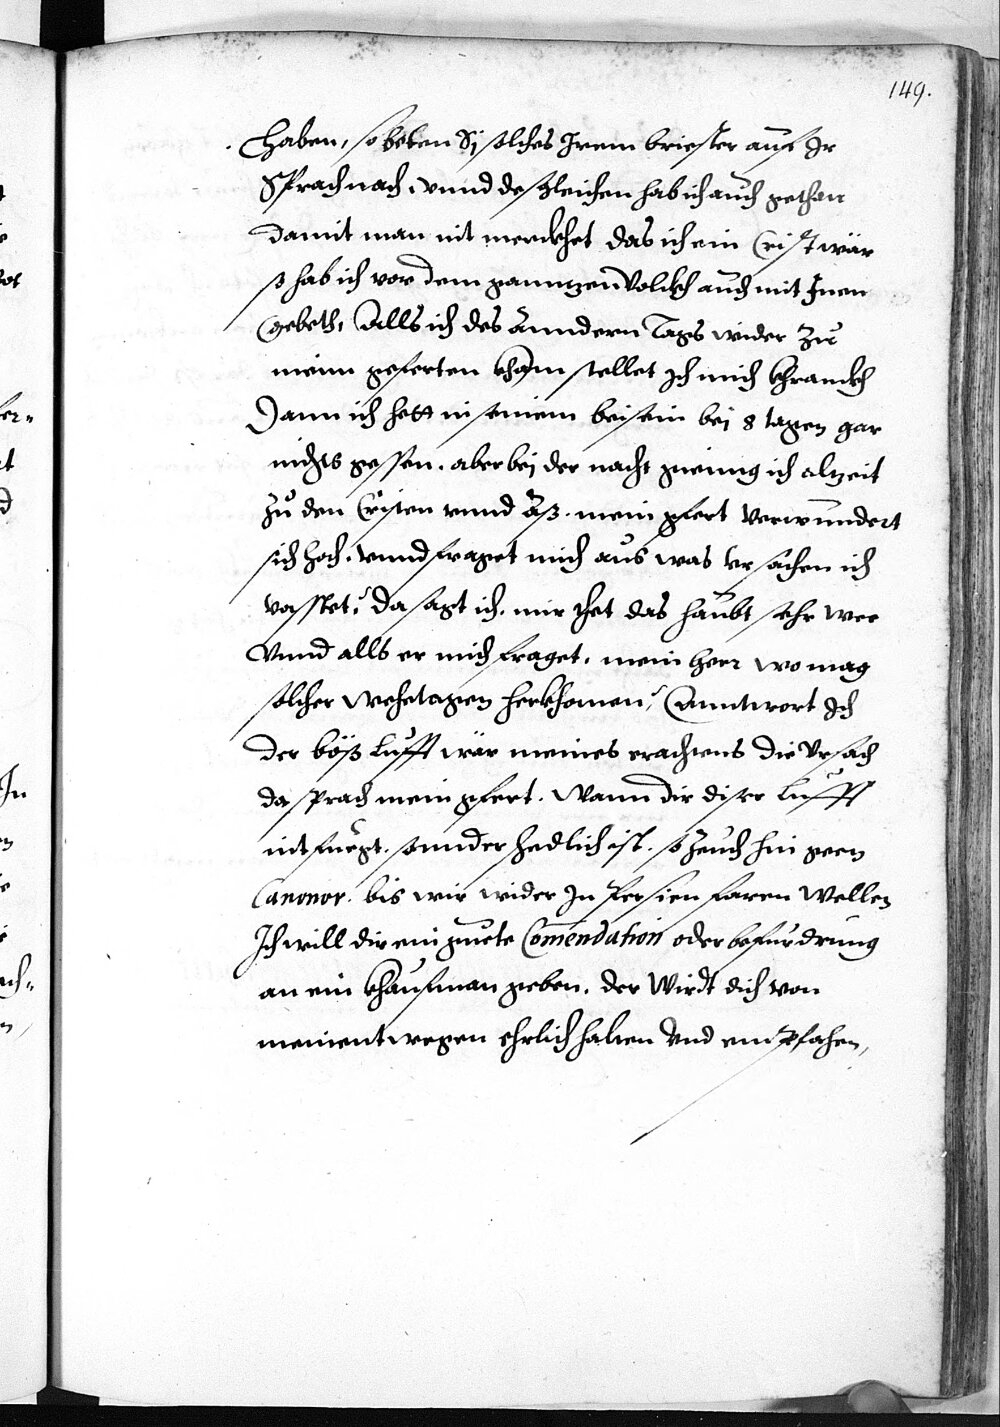 149.
haben, so beten Sj solches Irem briester auf Ir
Sprach nach, vnnd deszleichen hab ich auch gethan
damit man nit merckhet das ich ein Crist wär
so hab ich vor dem ganntzen Volckh auch mit Inen
Gebeth, Alls ich des anndern Tags wider zu
meim geferten kham stellet Ich mich khranckh
Dann ich hett in seinem beisein bej 8 tagen gar
nichts gessen. aber bej der nacht gieng ich alzeit
zu den Cristen vnnd äsz. mein gfert verwundert
sich hoch. vnnd fraget mich aus was vrsachen ich
vasstet, da sagt ich. mir thet das haubt sehr wee
Vnnd alls er mich fraget. mein herr wo mag
solcher wehetagen herkhomen, Anntwort Ich
der bösz lufft wär meines erachtens die vrsach
da sprach mein gfert. Wann dir diser lufft
nit fuegt. sonnder schedlich ist. so zeuch hin geen
Cananor. bis wir wider In Persien faren wellen
Ich will dir ein guete Comendation oder befurdrung
an ein khaufman geben. der Wirdt dich von
meinent wegen ehrlich halten Vnd empfahen,